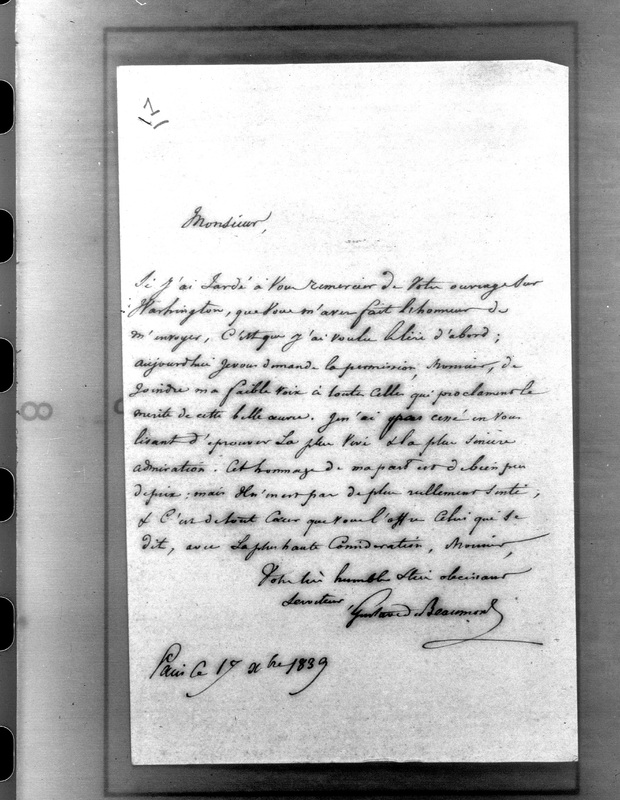 1
Monsieur,
Si j'ai Tardé à Vous remercier de Votre ouvrage Sur
Washington, que Vous m'avez fait l'honneur de
m'envoyer, C'est que j'ai voulu le lire d'abord ;
aujourd'hui Je vous demande la permission, Monsieur, de
Joindre ma faible Voix à toutes Celles qui proclament le
mérite de cette belle œuvre. Je n'ai pas cessé en vous
lisant d'éprouver La plus Vive & la plus Sincère
admiration. Cet hommage de ma part est de bien peu
de prix ; mais Il n'en est pas de plus réellement Senti,
& C'est de tout Cœur que vous l'offre Celui qui Se
dit, avec La plus haute Considération, Monsieur,
Votre très humble & très obéissant
Serviteur Gustave de Beaumont
Paris Ce 17 xbre 1839
8